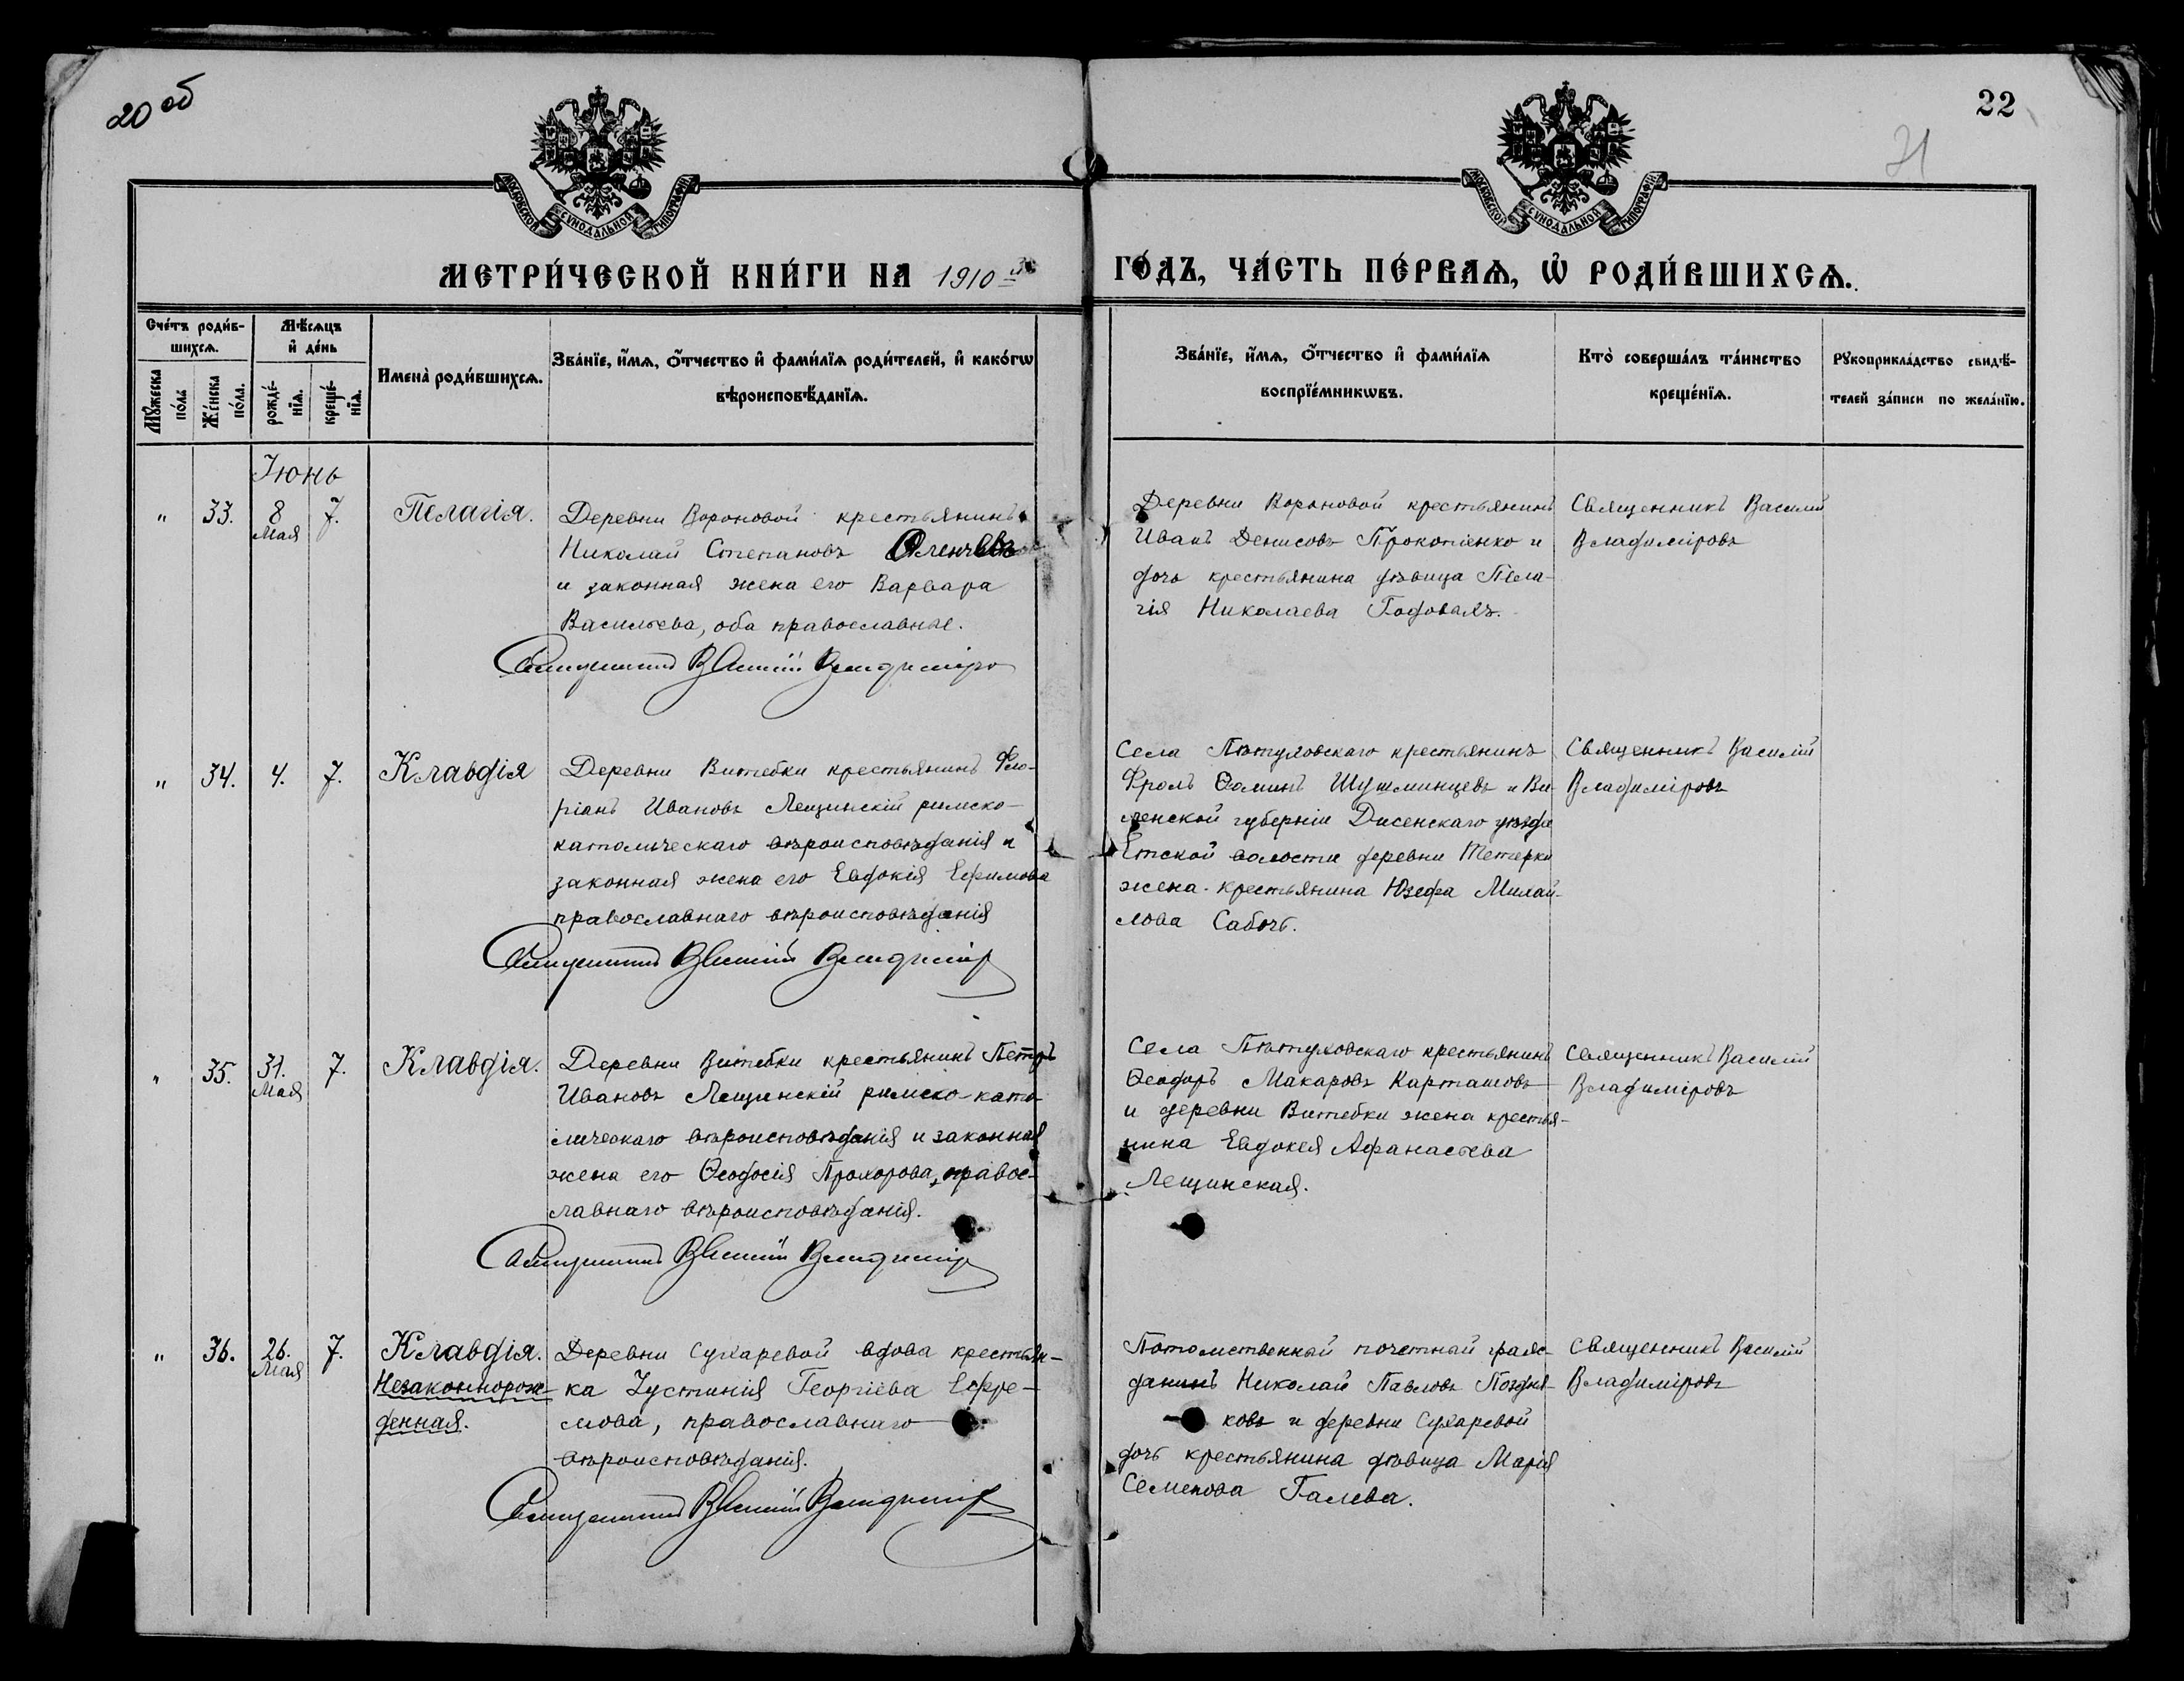 20 об
22
21
МОСКОВСКОЙ СѴНОДАЛЬНОЙ ТИПОГРАФІИ
МОСКОВСКОЙ СѴНОДАЛЬНОЙ ТИПОГРАФІИ
МЕТРИ́ЧЕСКОЙ КНИ́ГИ НА 1910 й ГО́ДЪ, ЧА́СТЬ ПЕ́РВАѦ, Ѽ РОДИ́ВШИХСѦ.
Сче́тъ роди́в-
шихсѧ.
Мꙋ́жеска
по́ла
Же́нска
по́ла.
Мѣ́сѧцъ
и҆ де́нь
рожде́-
нїѧ.
креще́-
нїѧ.
Имена̀ роди́вшихсѧ.
Зва́нїе, и҆́мѧ, ѻ҆́тчество и҆ фами́лїѧ роди́телей, и҆ како́гѡ
вѣроисповѣ́данїѧ.
Зва́нїе, и҆́мѧ, ѻ҆́тчество и҆ фами́лїѧ
воспрїе́мникѡвъ.
Кто̀ соверша́лъ та́инство
креще́нїѧ.
Рꙋкоприкла́дство свидѣ́-
телей за́писи по жела́нїю.
Іюнь
" 33. 8 7. Пелагія.
Мая
Деревни Вороновой крестьянинъ
Николай Степановъ
и законная жена его Варвара
Васильева, оба православные.
Священникъ Василій Владиміровъ
Деревни Вороновой крестьянинъ
Иванъ Денисовъ Прокопенко и
дочь крестьянина дѣвица Пела-
гія Николаева Годовалъ.
Священникъ Василій
Владиміровъ
" 34. 4. 7. Клавдія
Деревни Витебки крестьянинъ Фло-
ріанъ Ивановъ Лещинскій римско-
католическаго вѣроисповѣданія и
законная жена его Евдокія Ефимова
православнаго вѣроисповѣданія
Священникъ Василій Владиміровъ
Села Пѣтуховскаго крестьянинъ
Фролъ Ѳоминъ Шушминцевъ и Ви-
ленской губерніи Дисенскаго уѣзда
волости деревни Тетерки
жена крестьянина Юзефа Михай-
лова Сабочь.
Священникъ Василій
Владиміровъ
" 35. 31. 7. Клавдія.
Мая
Деревни Витебки крестьянинъ Петръ
Ивановъ Лещинскій римско-като-
лическаго вѣроисповѣданія и законная
жена его Ѳеодосія Прохорова, правос-
лавнаго вѣроисповѣданія.
Священникъ Василій Владиміровъ
Села Пѣтуховскаго крестьянинъ
Ѳеодоръ Макаровъ Карташовъ
и деревни Витебки жена крестья-
нина Евдокея Афанасьева
Лещинская.
Священникъ Василій
Владиміровъ
" 36. 26. 7. Клавдія.
Мая
Незаконнорож-
денная.
Деревни Сухаревой вдова крестьян-
ка Іустинія Георгіева Ефре-
мова, православнаго
вѣроисповѣданія.
Священникъ Василій Владиміровъ
Потомственный почетный граж-
данинъ Николай Павловъ Поздня-
ковъ и деревни Сухаревой
дочь крестьянина дѣвица Марія
Семенова Галева.
Священникъ Василій
Владиміровъ